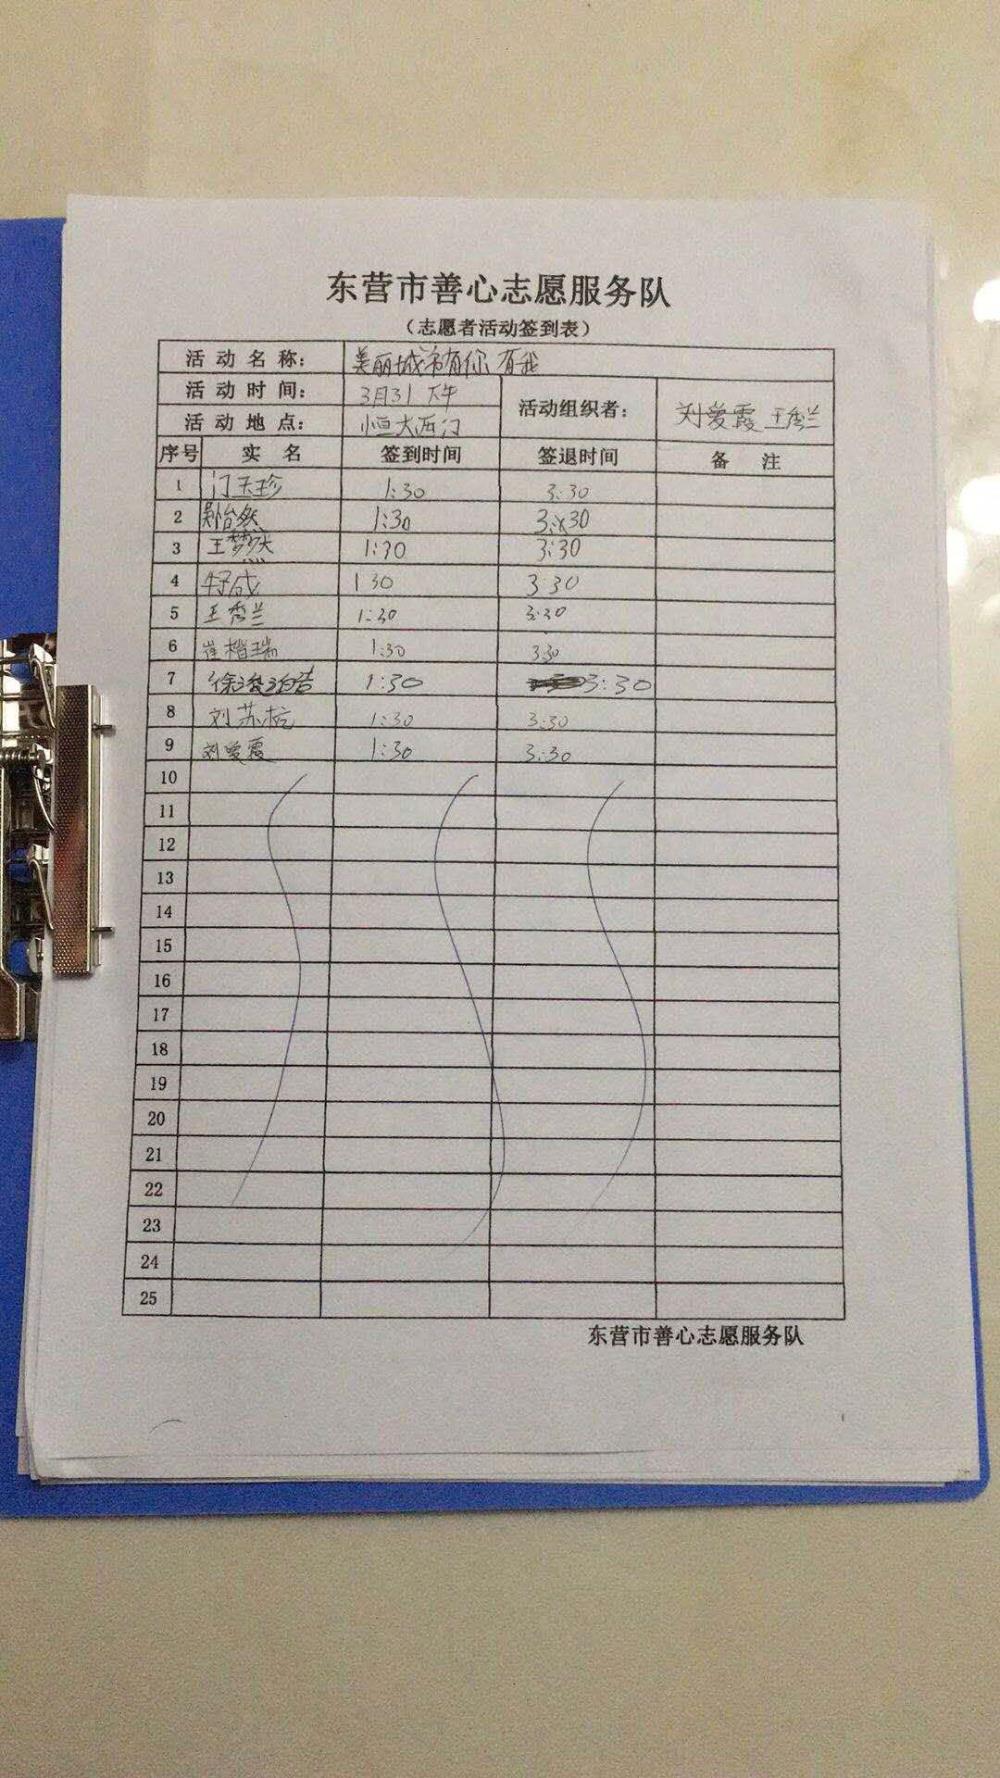 东营市善心志愿服务队
（志愿者活动签到表）
活动名称： 美丽城市有你有我
活动时间： 3月31下午 活动组织者： 刘爱霞 王秀兰
活动地点： 恒大西门
序号 实名 签到时间 签退时间 备注
1 门玉珍 1:30 3:30
2 怡然 1:30 3:30
3 王梦然 1:30 3:30
4 1 30 3 30
5 王秀兰 1:30 3:30
6 崔楷瑞 1:30 3:30
7 徐 1:30 3:30
8 刘苏杭 1:30 3:30
9 刘爱霞 1:30 3:30
10
11
12
13
14
15
16
17
18
19
20
21
22
23
24
25
东营市善心志愿服务队